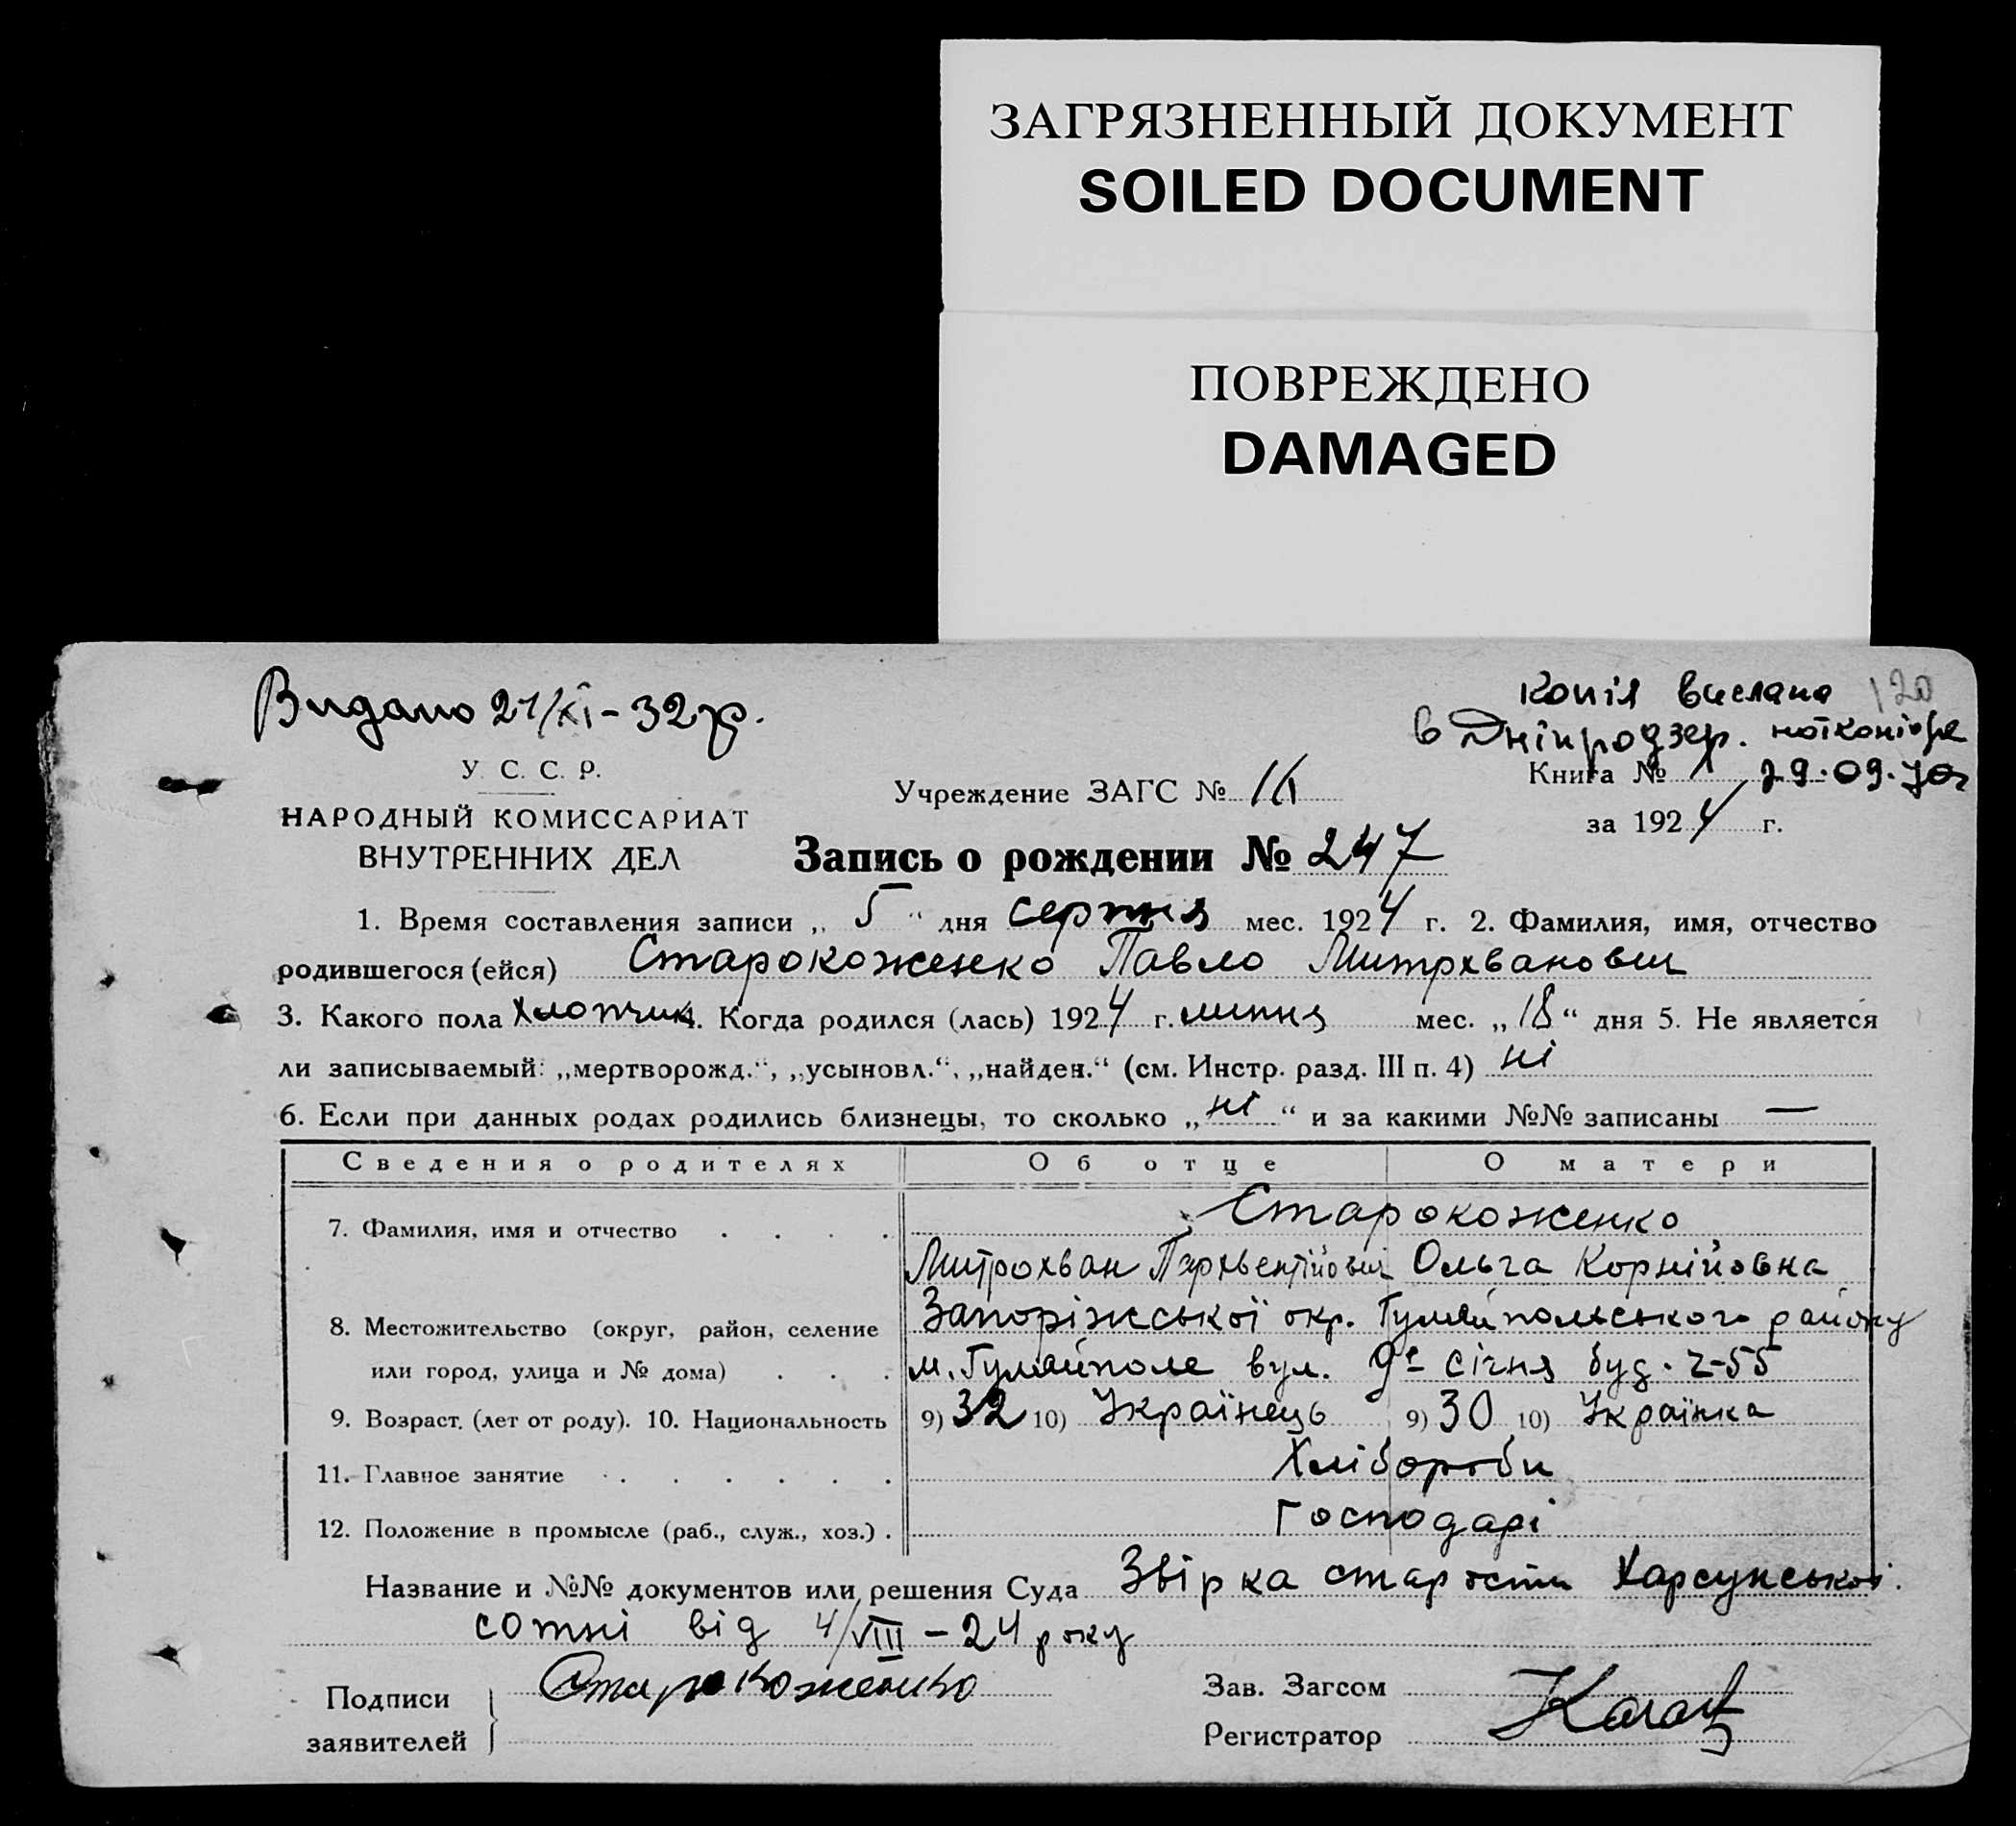 ЗАГРЯЗНЕННЫЙ ДОКУМЕНТ
SOILED DOCUMENT
ПОВРЕЖДЕНО
DAMAGED
Видано 21/XI - 32 р.
Копія вислана 120
в Дніпродзер. 
У. С. С. Р.
НАРОДНЫЙ КОМИССАРИАТ
ВНУТРЕННИХ ДЕЛ
Учреждение ЗАГС №
Книга № 1 29.09.70г
за 1924 г.
Запись о рождении № 247
1. Время составления записи „ 5 “ дня серпня мес. 1924 г. 2. Фамилия, имя, отчество
родившегося (ейся) Старокоженко Павло Митрхванович
3. Какого пола Хлопчик 4. Когда родился (лась) 1924 г. липня мес. „18“ дня 5. Не является
ли записываемый: „мертворожд.“, „усыновл.“, „найден.“ (см. Инстр. разд. III п. 4) ні
6. Если при данных родах родились близнецы, то сколько „ ні “ и за какими №№ записаны —
Сведения о родителях Об отце О матери
7. Фамилия, имя и отчество Старокоженко
Митрохван Пархвентійович Ольга Корніївна
8. Местожительство (округ, район, селение Запоріжської окр. Гуляйпольського району
или город, улица и № дома) м. Гуляйполе вул. 9го січня буд. ч-55
9. Возраст. (лет от роду). 10. Национальность 9) 32 10) Українець 9) 30 10) Українка
11. Главное занятие Хлібороби
12. Положение в промысле (раб., служ., хоз.) Господарі
Название и №№ документов или решения Суда Звірка старости Харсунської
сотні від 4/VIII - 24 року
Подписи
заявителей
Старокоженко
Зав. Загсом
Регистратор